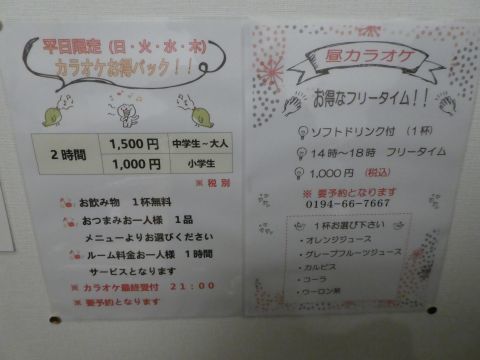 平日限定（日・火・水・木）
カラオケお得パック！！
2時間
1,500円 中学生～大人
1,000円 小学生
※税別
お飲み物 1杯無料
おつまみお一人様 1品
メニューよりお選びください
ルーム料金お一人様 1時間
サービスとなります
※カラオケ最終受付 21:00
※要予約となります
昼カラオケ
お得なフリータイム！！
ソフトドリンク付（1杯）
14時～18時 フリータイム
1,000円（税込）
※要予約となります
0194-66-7667
1杯お選び下さい
・オレンジジュース
・グレープフルーツジュース
・カルピス
・コーラ
・ウーロン茶